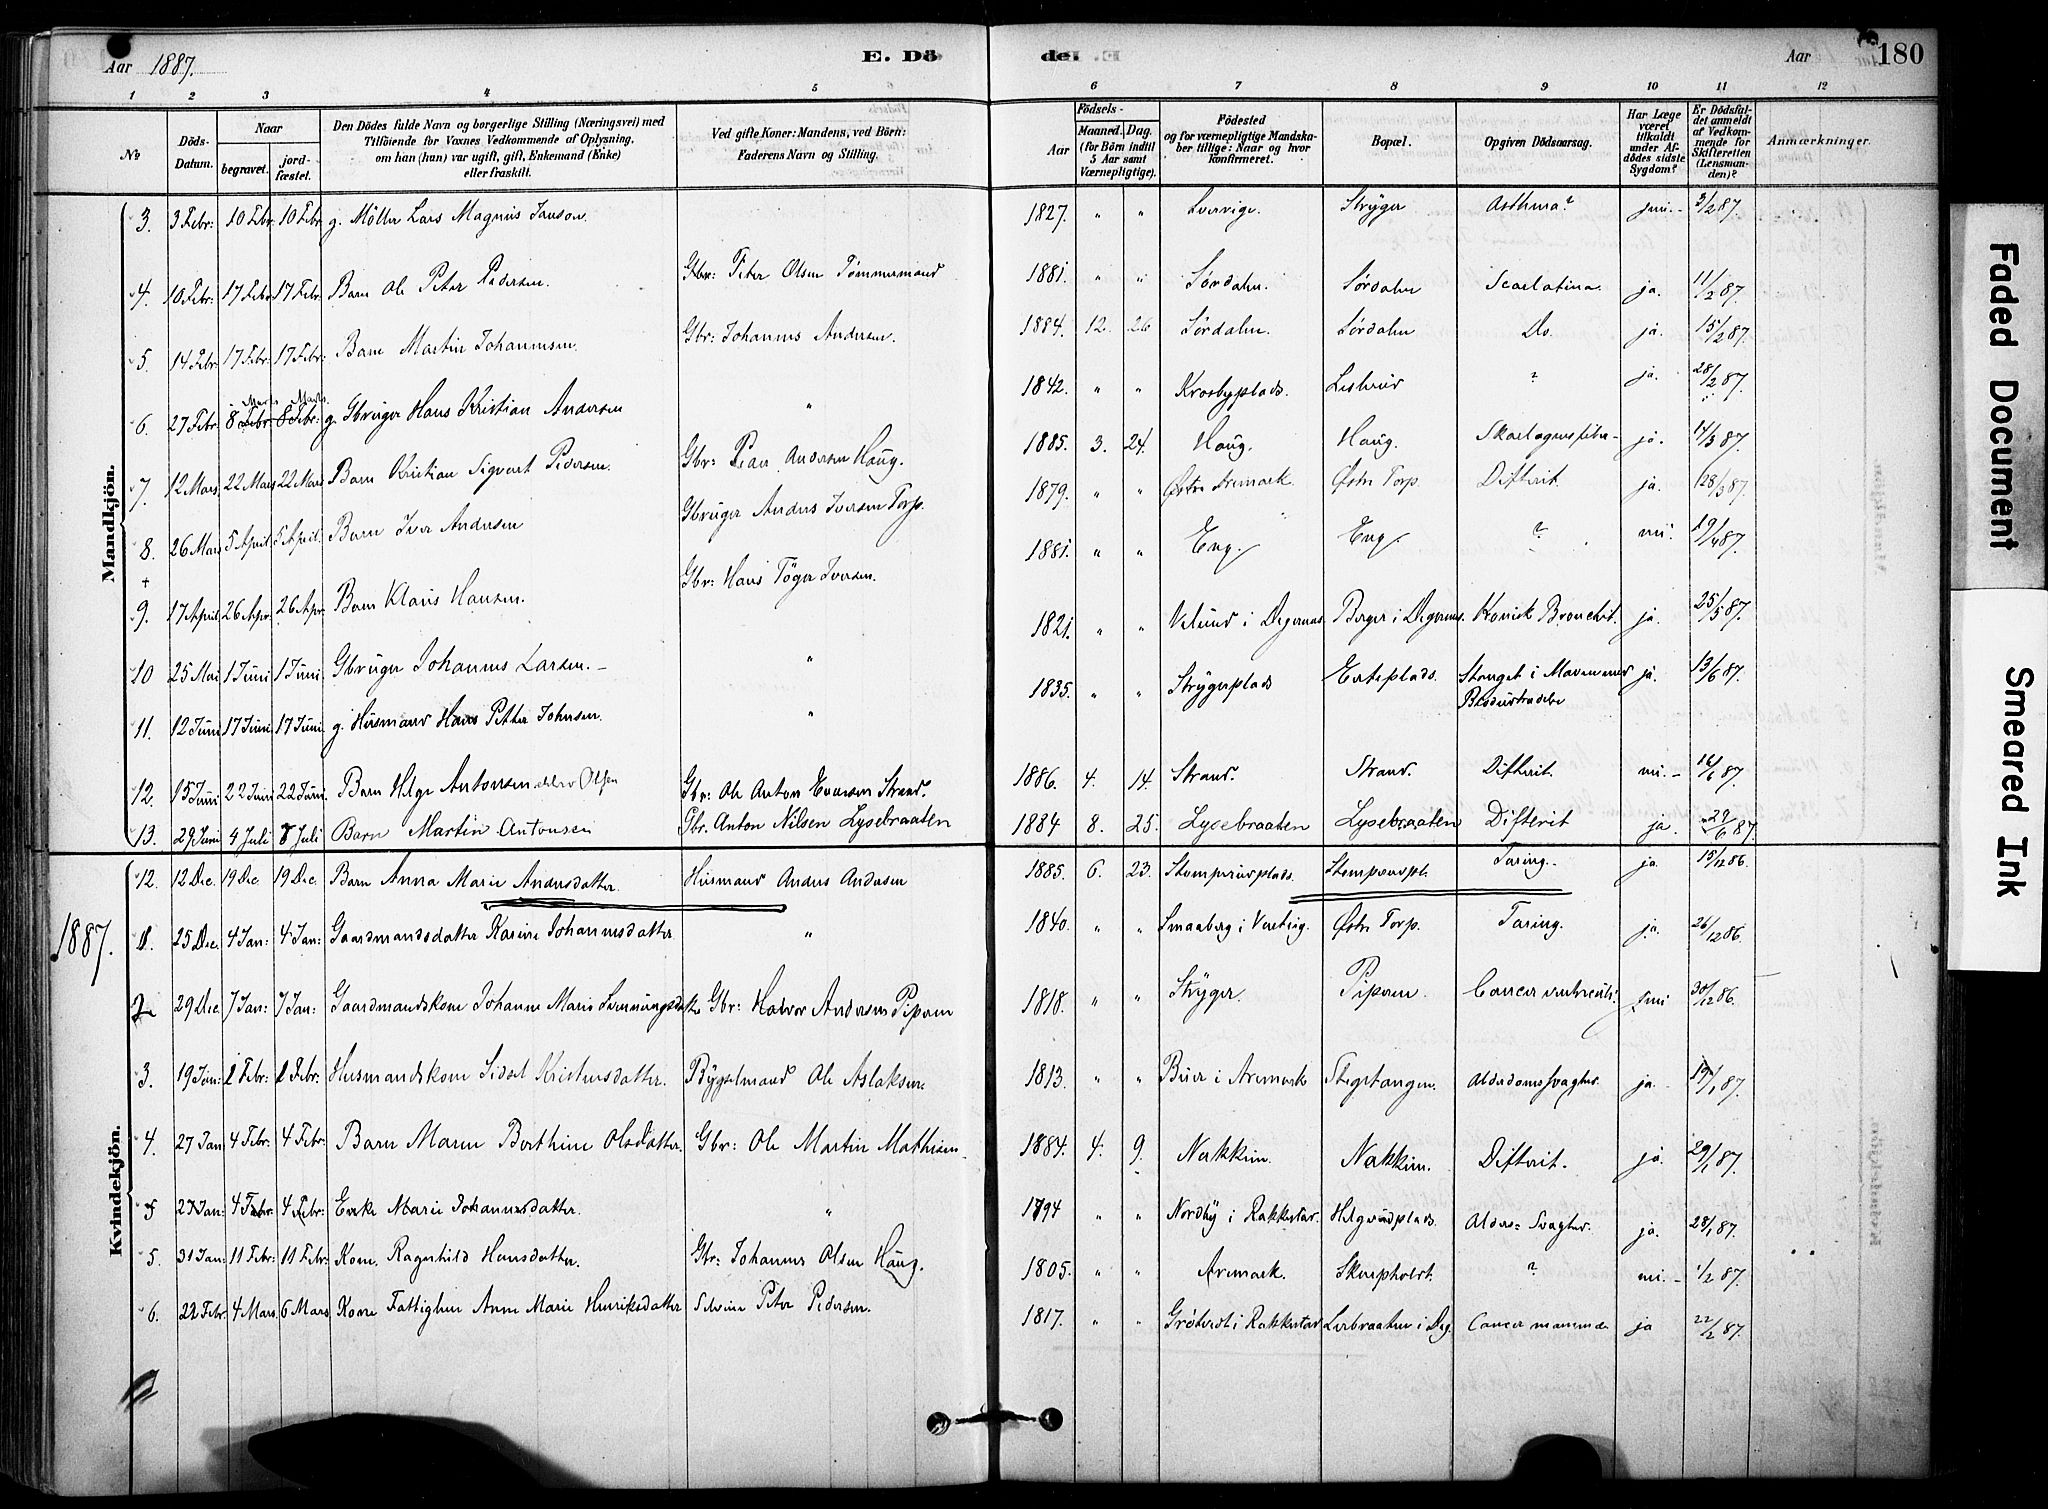 Aar 1887.
E. Dö
de.
Aar
180
1 2 3 4 5 6 7 8 9 10 11 12
No
Döds-Datum.
Naar
begravet.
jord-fæstet.
Den Dödes fulde Navn og borgerlige Stilling (Næringsvei) med
Tilföiende for Voxnes Vedkommende af Oplysning,
om han (hun) var ugift, gift, Enkemand (Enke)
eller fraskilt.
Ved gifte Koner: Mandens, ved Börn:
Faderens Navn og Stilling.
Födsels-
Aar
Maaned. Dag.
(for Börn indtil
5 Aar samt
Værnepligtige).
Födested
og for værnepligtige Mandska-
ber tillige: Naar og hvor
konfirmeret.
Bopæl.
Opgiven Dödsaarsag.
Har Læge
været
tilkaldt
under Af-
dödes sidste
Sygdom?
Er Dödsfal-
det anmeldt
af Vedkom-
mende for
Skifteretten
(Lensman-
den)?
Anmærkninger.
Mandkjön.
3. 3 Febr: 10 Febr: 10 Febr g. Möller Lars Magnus Janson 1827. " " Strÿger Asthma? 3/2 87.
4. 10 Febr: 17 Febr 17 Febr. Barn Ole Peter Pedersen. Gbr: Peter Olsen Tømmermand 1881. " " Sørdalen. Sørdalen Scarlatina. ja. 11/2 87.
5. 14 Febr: 17 Febr: 17 Febr: Barn Martin Johannesen. Gbr: Johannes Andersen. 1884. 12. 26 Sørdalen. Sørdalen Do. ja. 15/2 87.
6. 27 Febr. 8 Febr: Mars 8 Febr: Marts. g. Gbruger Hans Kristian Andersen " 1842. " " Krosbyplads. ? ja. 28/2 87.
7. 12 Mars 22 Mars 22 Mars Barn Kristian Sigvart Pedersen. Gbr: Peder Andersen Haug. 1885. 3. 24. Haug. Haug. ja. 14/3 87.
8. 26 Mars 5 April 5 April. Barn Iver Andersen Gbruger Anders Iversen Torp. 1879. " " Østre Aremark. Østre Torp. Difterit. ja. 28/3 87.
+
9. 17 April 26 Apr: 26 Apr: Barn Klaus Hansen. Gbr: Hans Töger Iversen. 1881. " " Eng. Eng. ? 19/4 87.
10 25 Mai 1 Juni 1 Juni Gbruger Johannes Larsen. " 1821. " " i Degernes. Berger i Degernes. Kronisk Bronchit. ja. 25/5 87.
11. 12 Juni 17 Juni 17 Juni g. Husmand Hans Petter Johnsen. " 1835. " " Strÿgerplads Erteplads. Stanget i Maven med ja. 13/6 87.
12. 15 Juni 22 Juni 22 Juni. Barn Helge Antonsen Olsen Gbr: Ole Anton Evensen Strand. 1886. 4. 14. Strand. Strand. Difterit. 16/6 87.
13. 29 Juni 4 Juli 8 Juli Barn Martin Antonsen Gbr. Anton Nilsen Lysebraaten 1884 8. 25. Lysebraaten Lysebraaten Difterit ja. 29/6 87.
Kvindekjön.
12. 12 Dec. 19 Dec. 19 Dec. Barn Anna Marie Andersdatter. Husmand Anders Andersen 1885. 6. 23. Stomperudplads. Stomperudpl. Tæring. ja 15/12 86.
1887.
1. 25 Dec. 4 Jan: 4 Jan: Gaardmandsdatter Karine Johannesdatter " 1840. " " Smaaberg i Østre Torp. Tæring. ja. 26/12 86.
2 29 Dec. 7 Jan: 7 Jan: Gaardmandskone Johanne Marie Gbr: Halvor Andersen Piperen 1818. " " Strÿger. Piperen. Cancer ventriculi. 30/12 86.
3. 19 Jan: 1 Febr: 1 Febr. Husmandskone Sidsel Kristensdatter. Bygselmand Ole Aslaksen 1813. " " Buer i Aremark Stegetangen. Alderdomssvaghed. ja. 19/1 87.
4. 27 Jan 4 Febr: 4 Febr: Barn Maren Berthine Olsdatter. Gbr: Ole Martin Mathisen 1884. 4. 9. Nakkim. Nakkim. Difterit. ja. 29/1 87.
5 27 Jan: 4 Febr: 4 Febr: Enke Marie Johannesdatter. " 1794 " " Nordby i Rakkestad. Helgerudplads. Alders-Svaghed. ja. 28/1 87.
5. 31 Jan: 11 Febr: 11 Febr: Kone Ragnhild Hansdatter. Gbr: Johannes Olsen Haug. 1805. " " Aremark. Skarpholt. ? 1/2 87.
6. 22 Febr. 4 Mars. 6 Mars Kone Fattiglem Anne Marie Henriksdatter Peter Pedersen. 1817. " " i Rakkestad Lerbraaten i Deg. Cancer mammae ja 22/2 87.
Faded Document
Smeared Ink